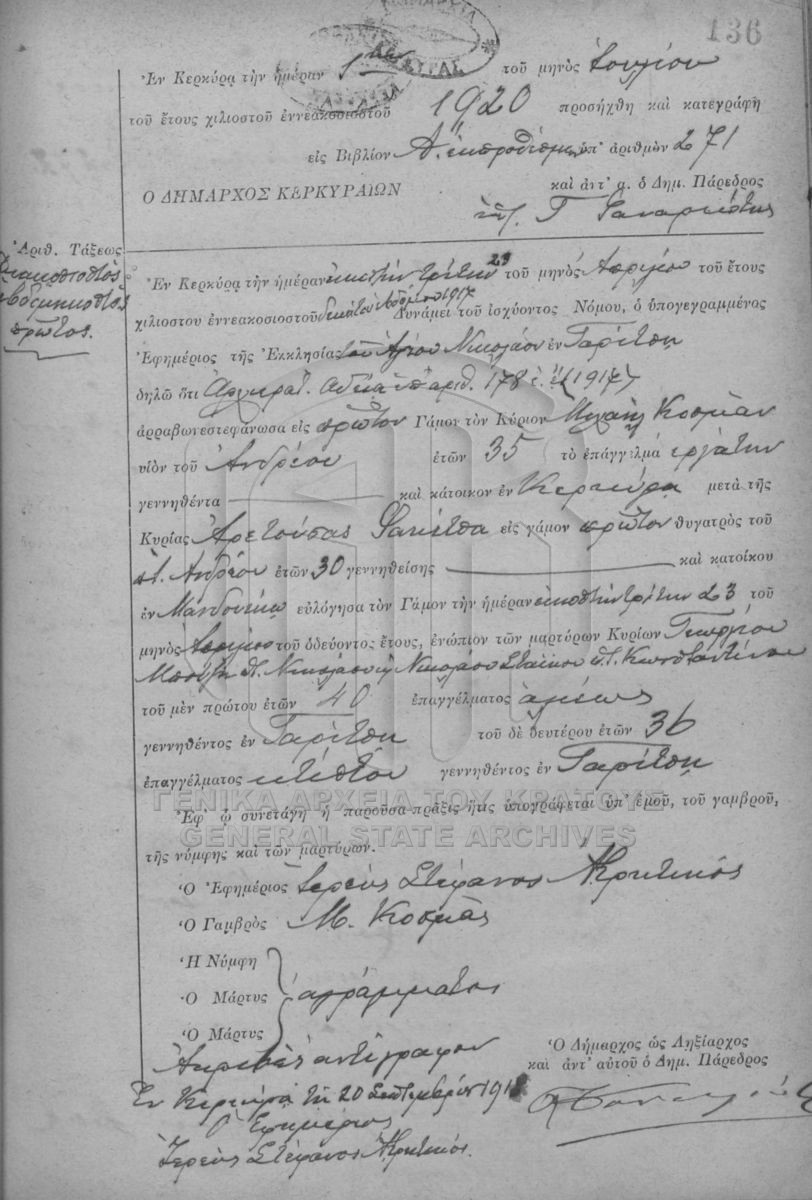 136
Ἐν Κερκύρᾳ τὴν ἡμέραν 1ην τοῦ μηνὸς Ἰουλίου
τοῦ ἔτους χιλιοστοῦ ἐννεακοσιοστοῦ 1920 προσήχθη καὶ κατεγράφη
εἰς Βιβλίον Α. ἐκπροθέσμων ὑπ' ἀριθμὸν 271
Ὁ ΔΗΜΑΡΧΟΣ ΚΕΡΚΥΡΑΙΩΝ
καὶ ἀντ' α. ὁ Δημ. Πάρεδρος
Γ
Ἀριθ. Τάξεως
διακοσιοστὸς
ἑβδομηκοστὸς
πρῶτος.
Ἐν Κερκύρᾳ τὴν ἡμέραν εἰκοστὴν τρίτην 23 τοῦ μηνὸς Ἀπριλίου τοῦ ἔτους
χιλιοστοῦ ἐννεακοσιοστοῦ δεκάτου ἑβδόμου 1917 Δυνάμει τοῦ ἰσχύοντος Νόμου, ὁ ὑπογεγραμμένος
Ἐφημέριος τῆς Ἐκκλησίας τοῦ Ἁγίου Νικολάου ἐν Γαρίτσῃ
δηλῶ ὅτι Ἀρχιερατ. ἀδείᾳ ὑπ' ἀριθ. 178 ἐ. ἔ. (1917)
ἀρραβωνεστεφάνωσα εἰς πρῶτον Γάμον τὸν Κύριον Μιχαὴλ Κοσμᾶν
υἱὸν τοῦ Ἀνδρέου ἐτῶν 35 τὸ ἐπάγγελμα ἐργάτην
γεννηθέντα καὶ κάτοικον ἐν Κερκύρᾳ μετὰ τῆς
Κυρίας Ἀρετούσας εἰς γάμον πρῶτον θυγατρὸς τοῦ
π. Ἀνδρέου ἐτῶν 30 γεννηθείσης καὶ κατοίκου
ἐν Μανδουκίῳ εὐλόγησα τὸν Γάμον τὴν ἡμέραν εἰκοστὴν τρίτην 23 τοῦ
μηνὸς Ἀπριλίου τοῦ ὁδεύοντος ἔτους, ἐνώπιον τῶν μαρτύρων Κυρίων Γεωργίου
π. Νικολάου κ Νικολάου Σταϊκου π. Κωνσταντίνου
τοῦ μὲν πρώτου ἐτῶν 40 ἐπαγγέλματος
γεννηθέντος ἐν Γαρίτσῃ τοῦ δὲ δευτέρου ἐτῶν 36
ἐπαγγέλματος κτίστου γεννηθέντος ἐν Γαρίτσῃ
ΓΕΝΙΚΑ ΑΡΧΕΙΑ ΤΟΥ ΚΡΑΤΟΥΣ
Ἐφ' ᾧ συνετάγη ἡ παροῦσα πρᾶξις ἥτις ὑπογράφεται ὑπ' ἐμοῦ, τοῦ γαμβροῦ,
GENERAL STATE ARCHIVES
τῆς νύμφης καὶ τῶν μαρτύρων.
Ὁ Ἐφημέριος Ἱερεὺς Στέφανος Κρητικός
Ὁ Γαμβρὸς Μ. Κοσμᾶς
Ἡ Νύμφη
Ὁ Μάρτυς ἀγράμματοι
Ὁ Μάρτυς
Ἀκριβὲς ἀντίγραφον
Ἐν Κερκύρᾳ τῇ 20 Σεπτεμβρίου
Ὁ Ἐφημέριος
Ἱερεὺς Στέφανος Κρητικός.
Ὁ Δήμαρχος ὡς Ληξίαρχος
καὶ ἀντ' αὐτοῦ ὁ Δημ. Πάρεδρος